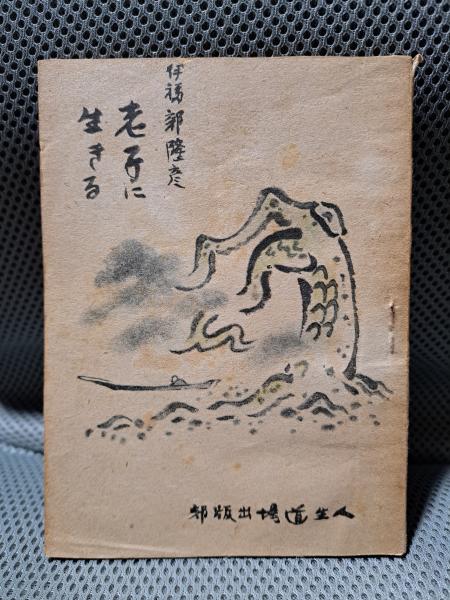 伊福部隆彦
老子に
生きる
人生道場出版部